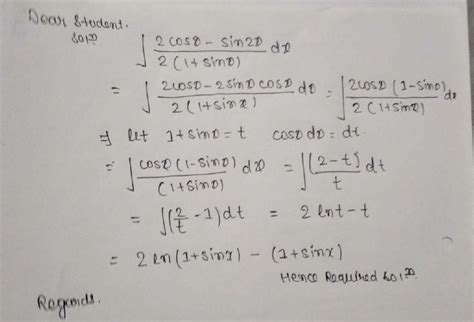 Dear Student.
Sol^n
∫ (2cosθ - sin2θ)/(2(1+sinθ)) dθ
= ∫ (2cosθ - 2sinθ cosθ)/(2(1+sinx)) dθ = ∫ (2cosθ (1-sinθ))/(2(1+sinθ)) dx
⇒ let 1+sinθ = t cosθ dθ = dt.
= ∫ (cosθ (1-sinθ))/((1+sinθ)) dθ = ∫ ((2-t))/t dt
= ∫(2/t - 1)dt = 2 lnt - t
= 2 ln(1+sinx) - (1+sinx)
Hence Required Sol^n
Regards.